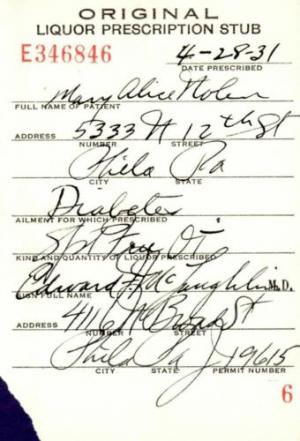 ORIGINAL
LIQUOR PRESCRIPTION STUB
E346846 4-28-31
DATE PRESCRIBED
Mary Alice
FULL NAME OF PATIENT
ADDRESS 5333 N 12th St
NUMBER STREET
Phila Pa
CITY STATE
Diabetes
AILMENT FOR WHICH PRESCRIBED
KIND AND QUANTITY OF LIQUOR PRESCRIBED
Edward J. McLaughlin M.D.
SIGN FULL NAME
ADDRESS 4116 N Broad St
NUMBER STREET
Phila Pa 19615
CITY STATE PERMIT NUMBER
6